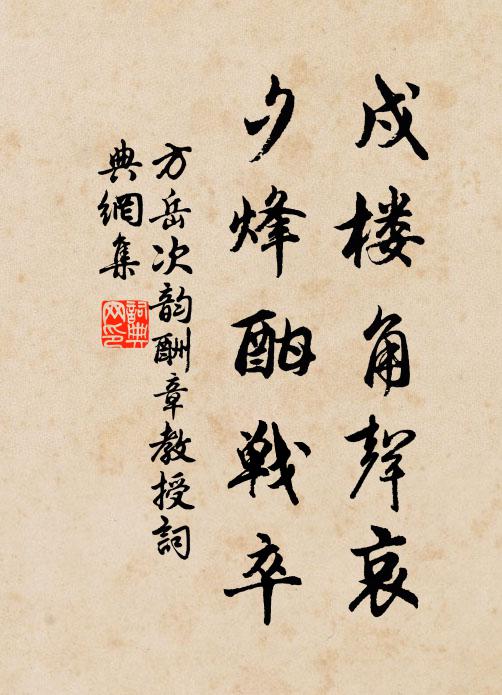 戍楼角聲哀
夕烽酣戦卒
方岳次韵酬章教授詞
典網集
詞典网印